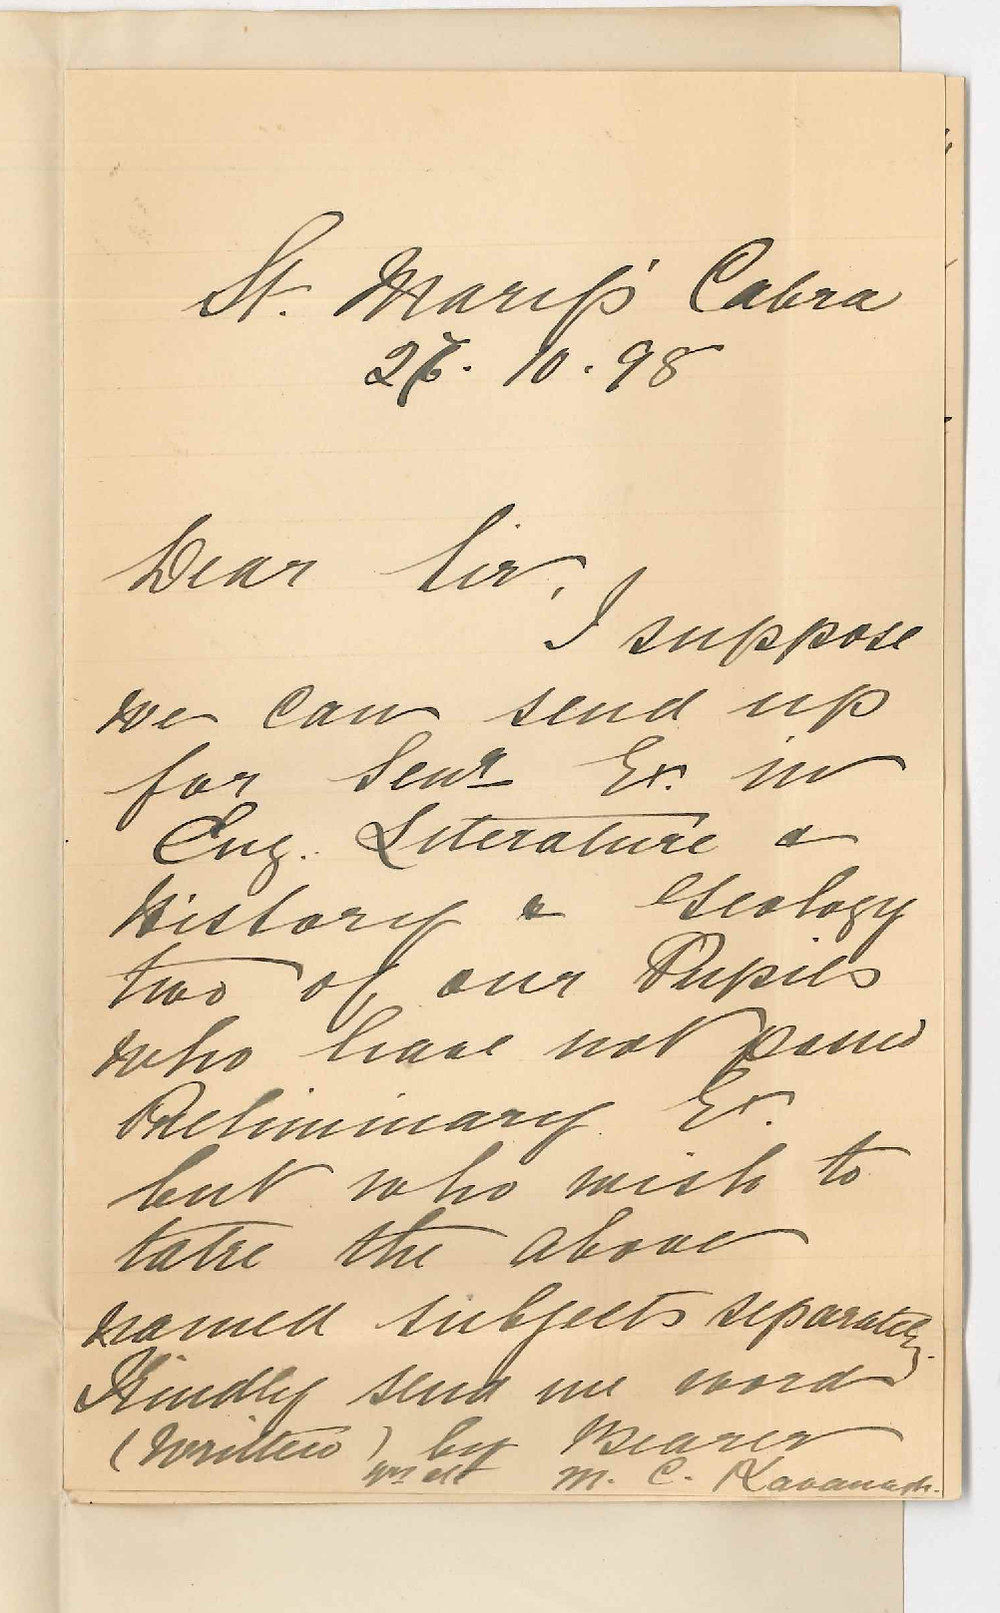 St. Mary's Cabra
26. 10. 98
Dear Sir,
I suppose
we can send up
for Senr Ex. in
Eng. Literature &
History & Geology
two of our Pupils
who have not pass'd
Preliminary Ex.
but who wish to
take the above
named subjects separately.
Kindly send me word
(Written) by Bearer
M. C. Kavanagh.